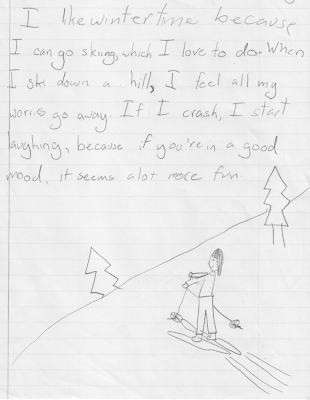 I like wintertime because
I can go skiing, which I love to do. When
I ski down a hill, I feel all my
worris go away. If I crash, I start
laughing, because if you're in a good
mood, it seems alot more fun.